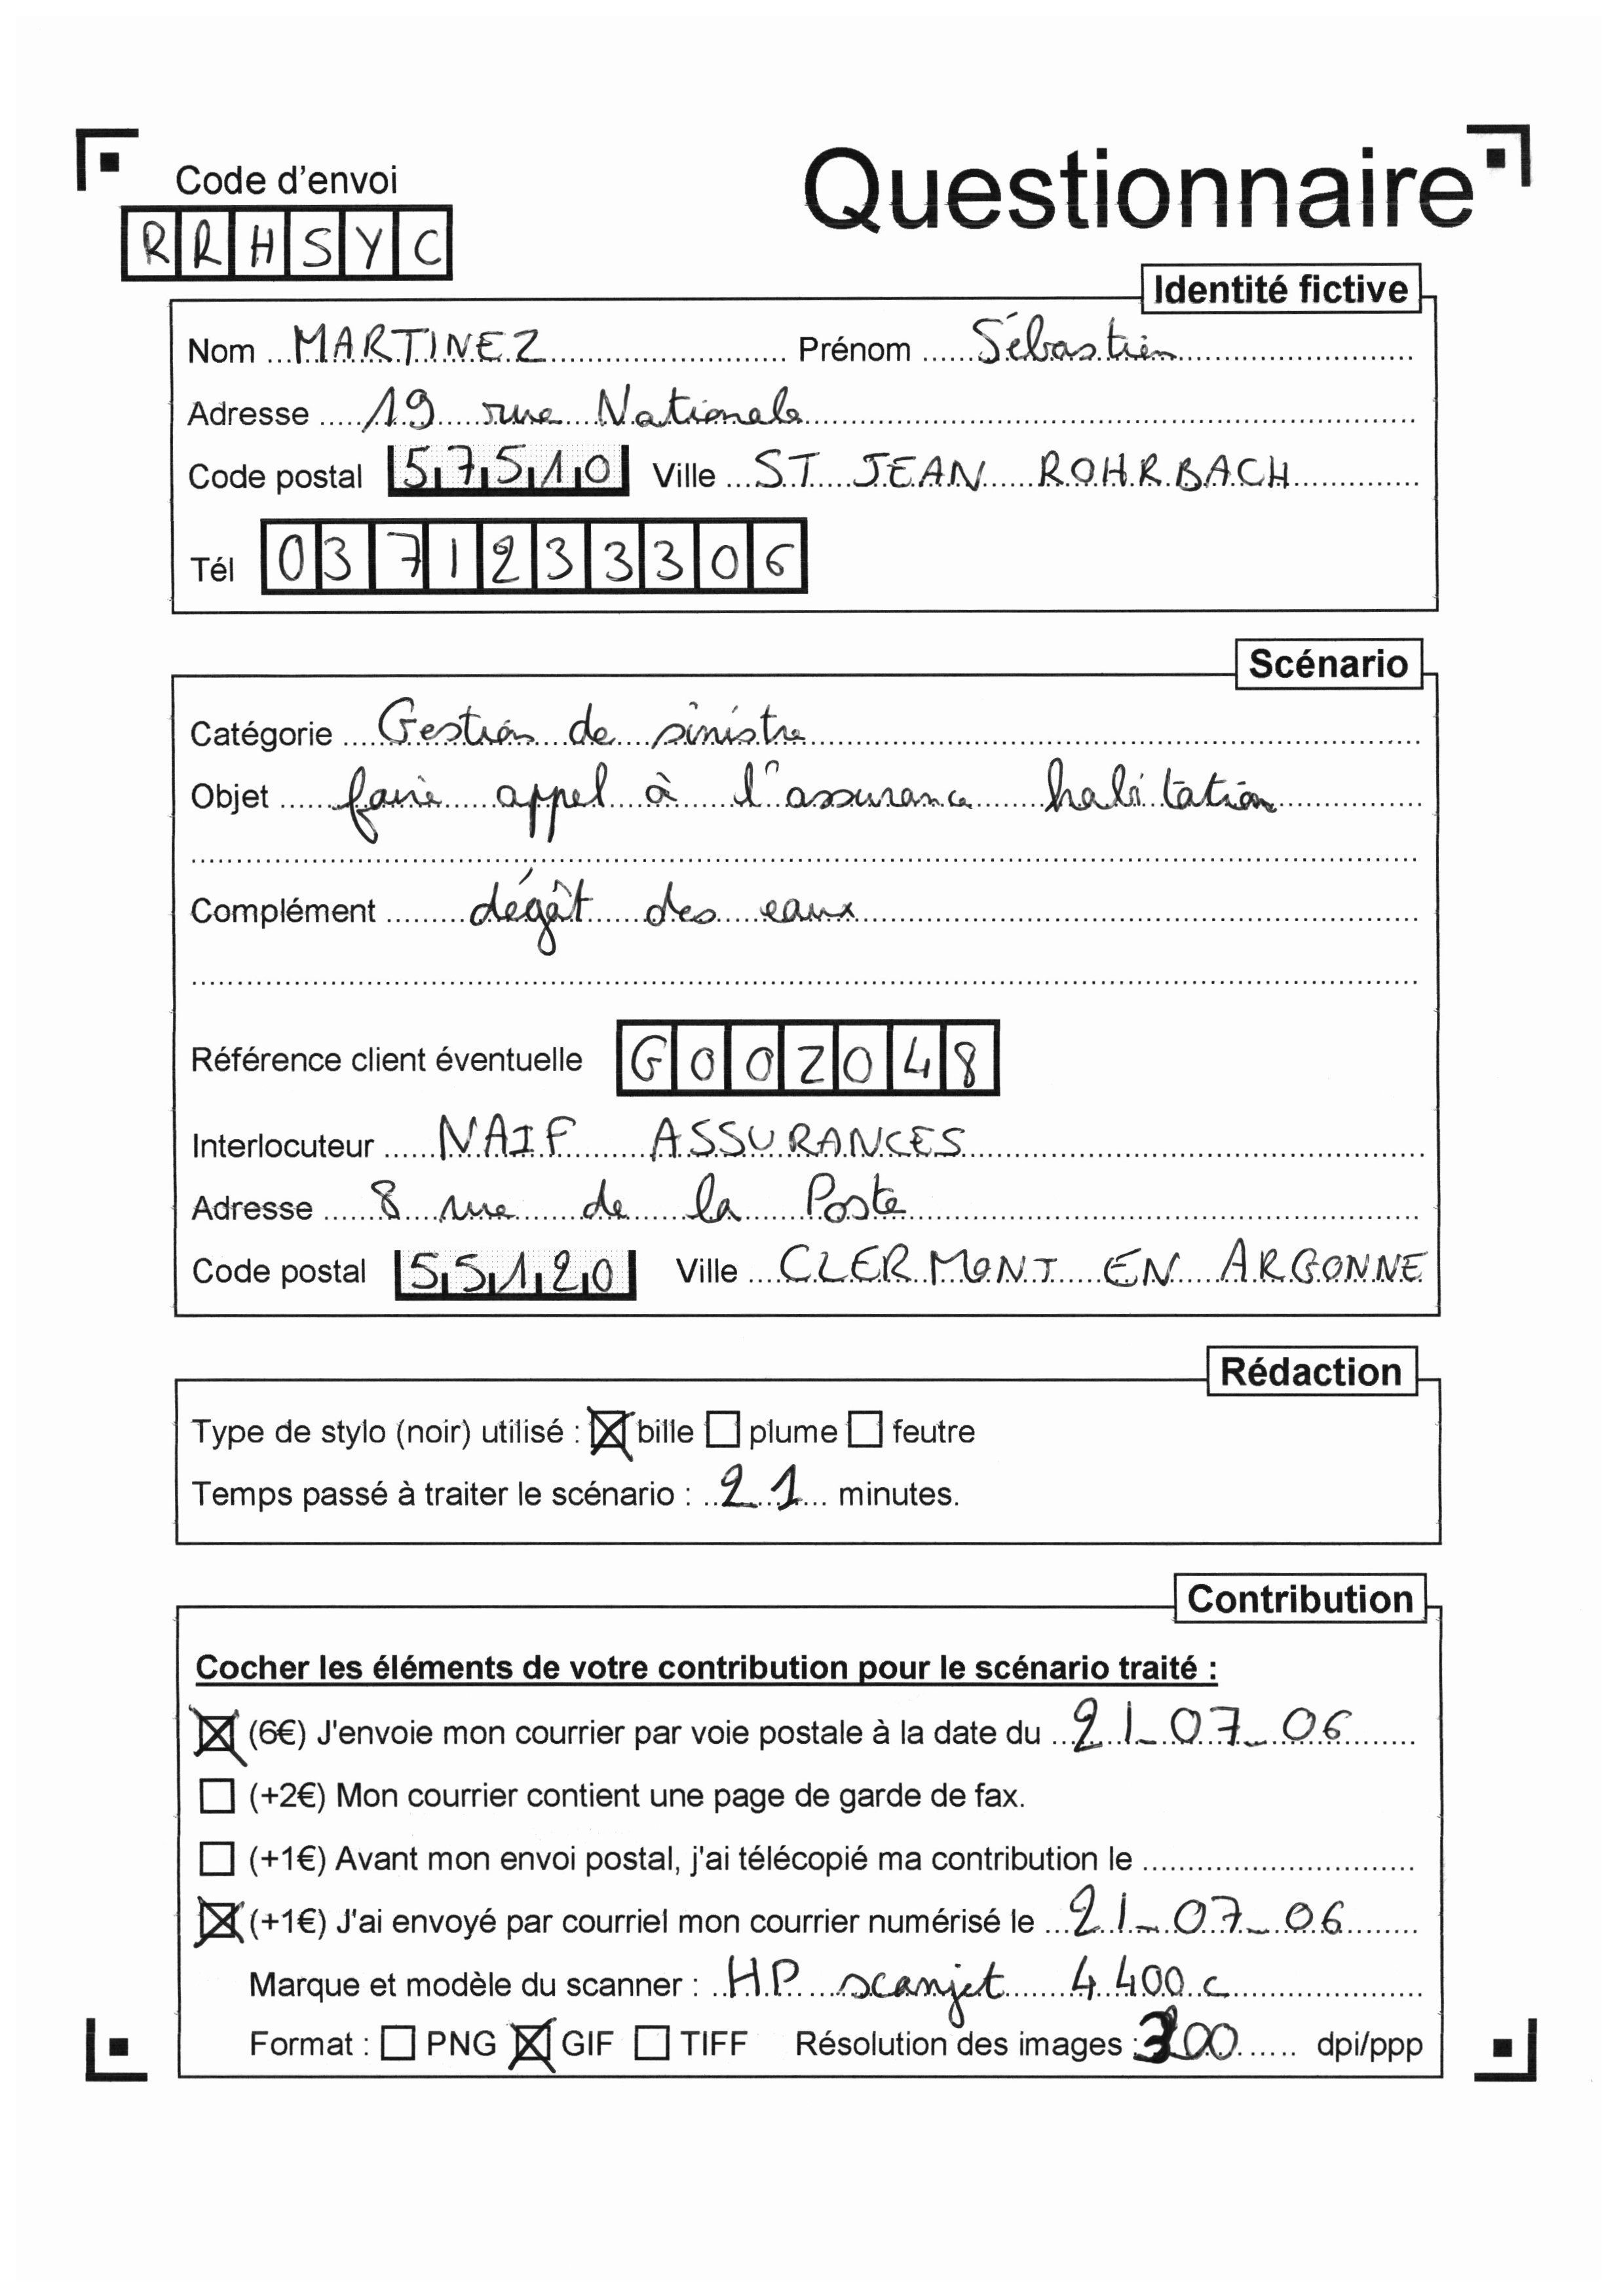 Code d'envoi
Questionnaire
RRHSYC
Identité fictive
Nom MARTINEZ Prénom Sébastien
Adresse 19 rue Nationale
Code postal 57510 Ville ST JEAN ROHRBACH
Tél 0371233306
Scénario
Catégorie Gestion de sinistre
Objet faire appel à l'assurance habitation
Complément dégât des eaux
Référence client éventuelle G002048
Interlocuteur NAIF ASSURANCES
Adresse 8 rue de la Poste
Code postal 55120 Ville CLERMONT EN ARGONNE
Rédaction
Type de stylo (noir) utilisé : ☒ bille ☐ plume ☐ feutre
Temps passé à traiter le scénario : 21 minutes.
Contribution
Cocher les éléments de votre contribution pour le scénario traité :
☒ (6€) J'envoie mon courrier par voie postale à la date du 21-07-06
☐ (+2€) Mon courrier contient une page de garde de fax.
☐ (+1€) Avant mon envoi postal, j'ai télécopié ma contribution le
☒ (+1€) J'ai envoyé par courriel mon courrier numérisé le 21-07-06
Marque et modèle du scanner : HP scanjet 4400c
Format : ☐ PNG ☒ GIF ☐ TIFF Résolution des images : 300 dpi/ppp